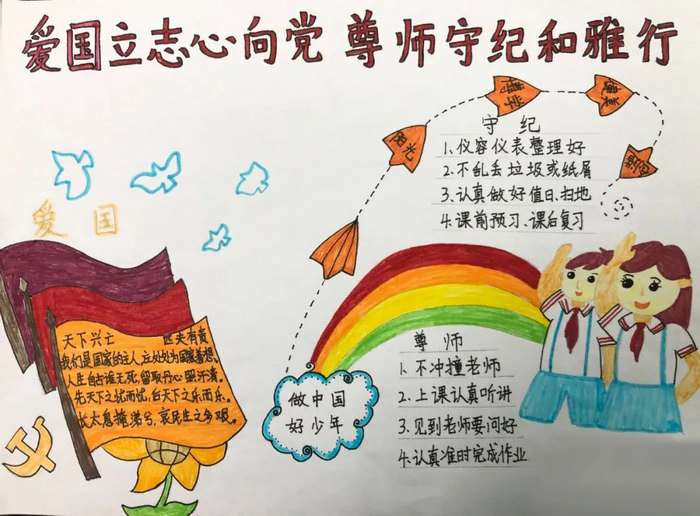 爱国立志心向党 尊师守纪和雅行
爱国
天下兴亡 匹夫有责
我们是国家的主人,应处处为国家着想。
人生自古谁无死,留取丹心照汗青。
先天下之忧而忧,后天下之乐而乐。
长太息掩涕兮,哀民生之多艰。
阳光
博学
守纪
1.仪容仪表整理好
2.不乱丢垃圾或纸屑
3.认真做好值日、扫地
4.课前预习、课后复习
做中国
好少年
尊师
1.不冲撞老师
2.上课认真听讲
3.见到老师要问好
4.认真准时完成作业